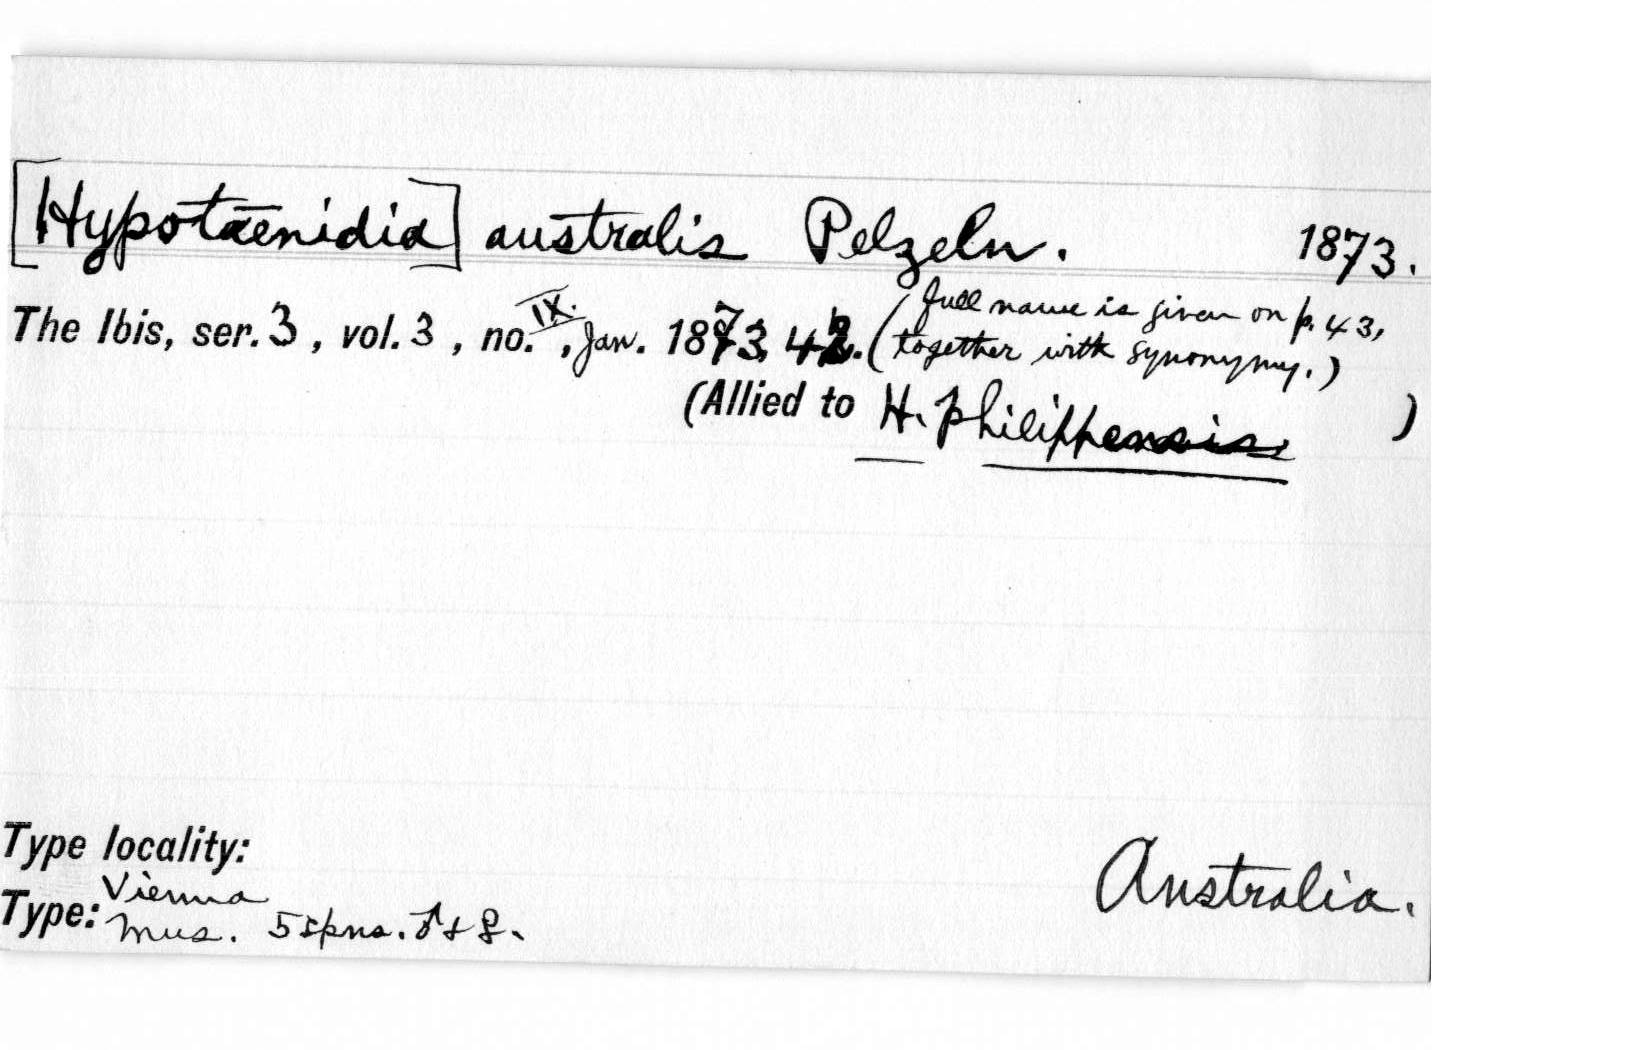 [Hypotaenidia] australis Pelzeln. 1873.
The Ibis, ser. 3, vol. 3, no. IX., Jan. 1873, 42. (full name is given on p. 43,
together with synonymy.)
(Allied to H. philippensis )
Type locality: Australia.
Type: Vienna
Mus. 5 spns. ♂ & ♀.